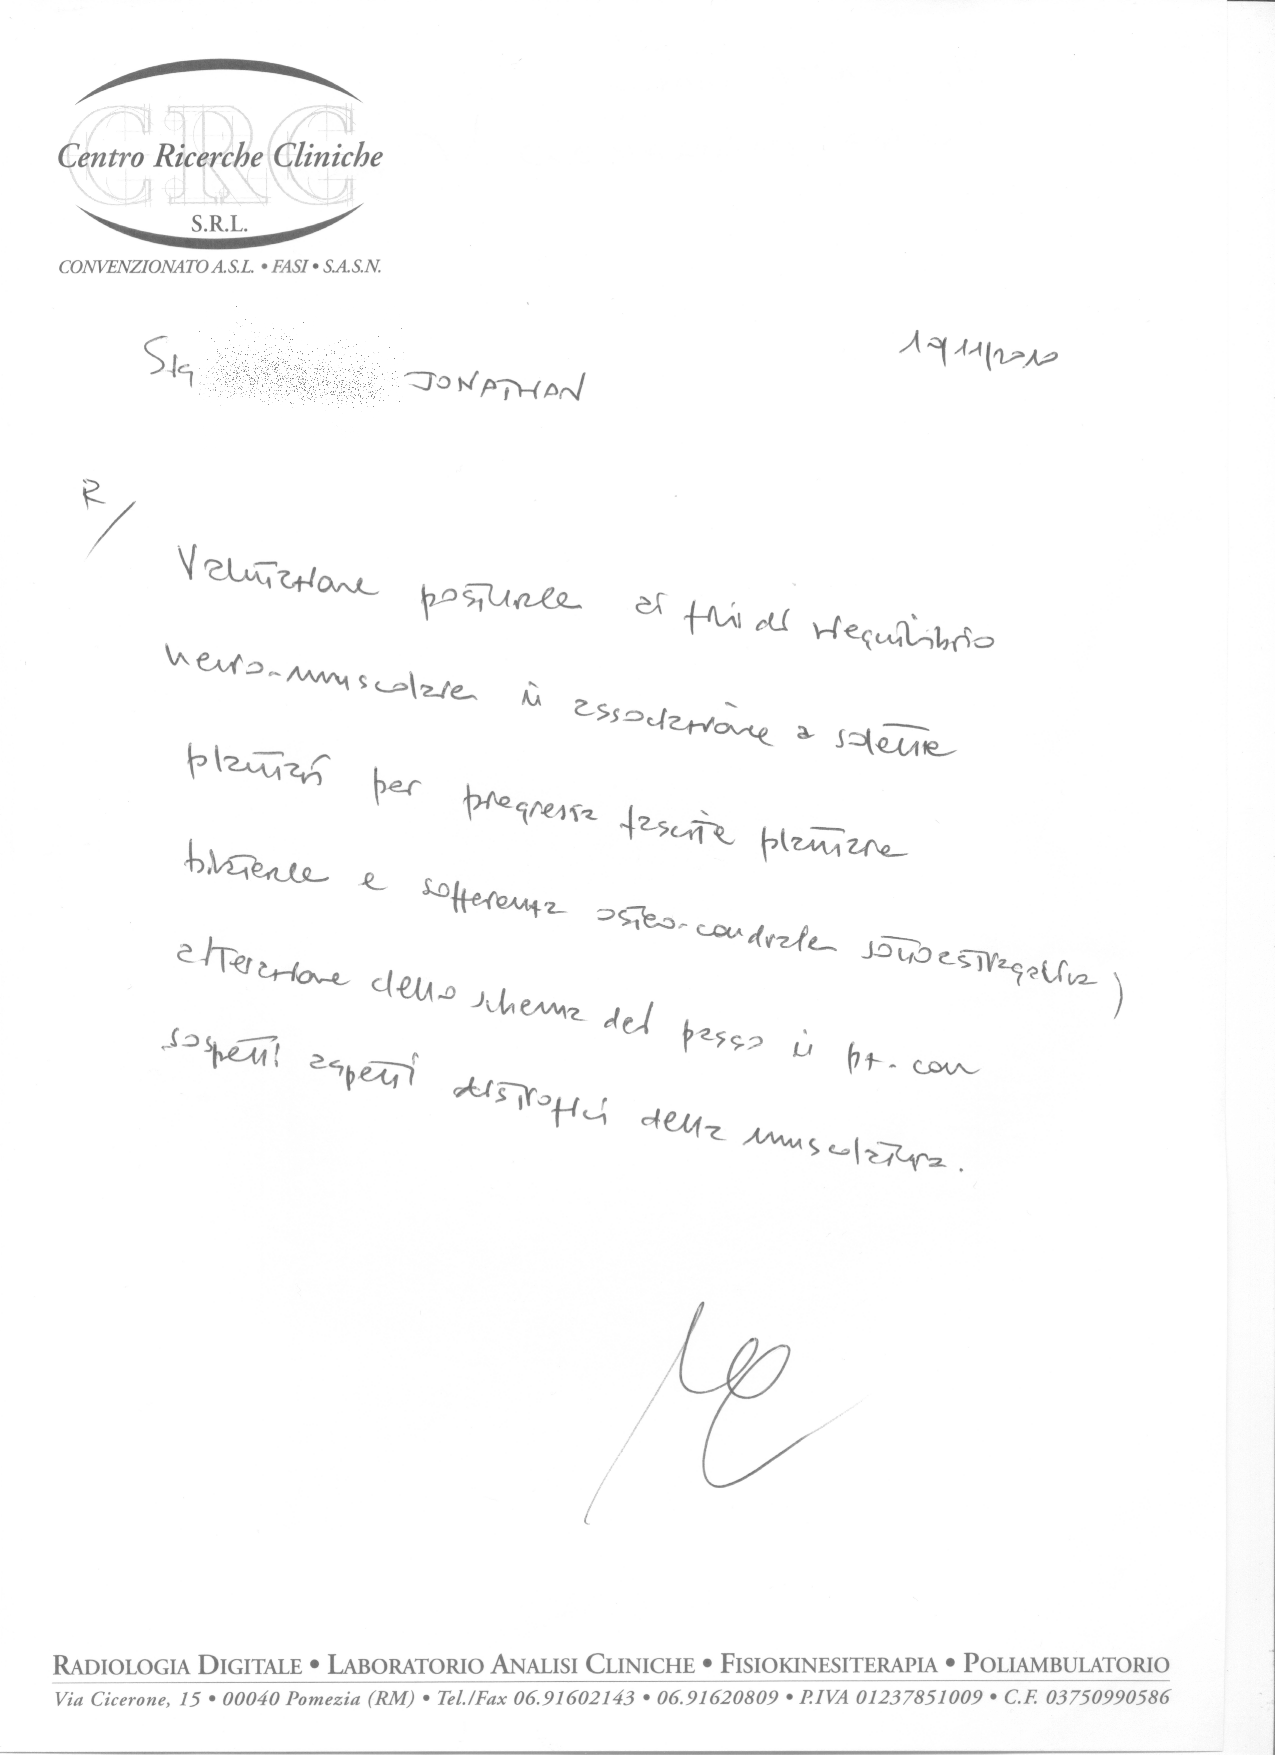 CRC
Centro Ricerche Cliniche
S.R.L.
CONVENZIONATO A.S.L. • FASI • S.A.S.N.
Sig JONATHAN
19/11/2010
R/
Valutazione posturale ai fini di riequilibrio
neuro-muscolare in associazione a solette
plantari per pregressa fascite plantare
bilaterale e sofferenza osteo-condrale sottoastragalica,
alterazione dello schema del passo in pt. con
sospetti aspetti distrofici della muscolatura.
RADIOLOGIA DIGITALE • LABORATORIO ANALISI CLINICHE • FISIOKINESITERAPIA • POLIAMBULATORIO
Via Cicerone, 15 • 00040 Pomezia (RM) • Tel./Fax 06.91602143 • 06.91620809 • P.IVA 01237851009 • C.F. 03750990586